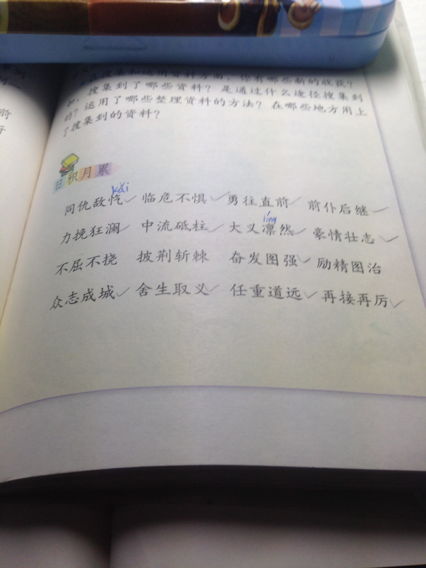 搜集和运用资料方面，你有哪些新的收获？
如，搜集到了哪些资料？是通过什么途径搜集到
的？运用了哪些整理资料的方法？在哪些地方用上
了搜集到的资料？
日积月累
kài
同仇敌忾 临危不惧 勇往直前 前仆后继
lǐn
力挽狂澜 中流砥柱 大义凛然 豪情壮志
不屈不挠 披荆斩棘 奋发图强 励精图治
众志成城 舍生取义 任重道远 再接再厉